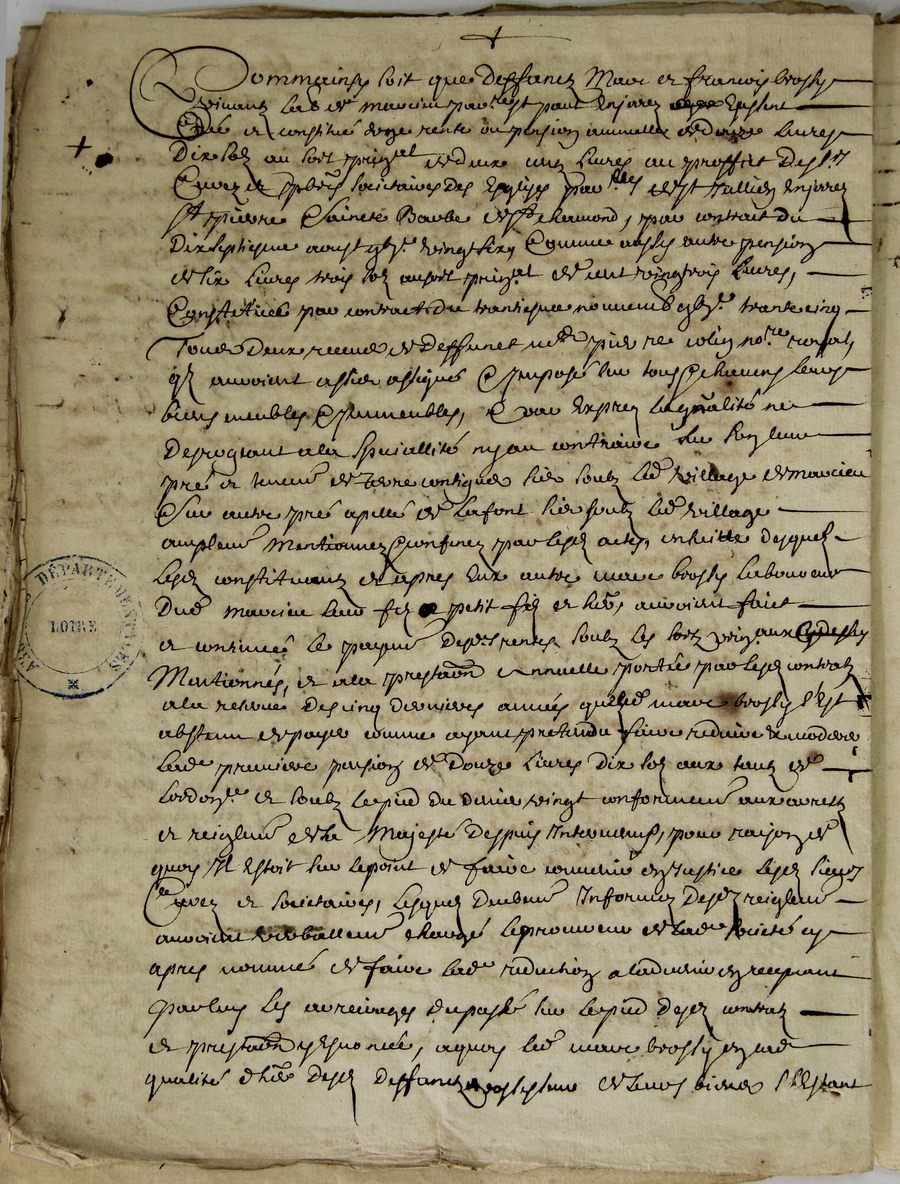 Comme ainsy soit que deffunctz Marc et francois brossy
vivantz lab de marcieu parroisse
Créé et constitué une rente ou pension annuelle de douze livres
Dix solz au sort prinal de deux centz livres au proffict des srs
Curez et pbres socitaires des Esglizes par de st Jullien en jarez
st pierre saincte Barbe de st chamond, par contrait du
Dix septiesme aoust vingt six, Comme aussy autre pension
de six livres trois solz au sort prinal de cent vingtrois livres,
Constituée par contract du trantiesme novembre trante cinq
Tous deux receus de deffunct me pierre colin nore royal,
qlz auroient assise assignée & Imposée sur tous & chacuns leurs
biens meubles & Immeubles, & par Exprez la qualité ne
Desrogeant a la speciallité ny au contraire sur
pré et de terre contigus size soubz led village de marcieu
& sur autre pré apellé de lafont size soubz led village
amplemt Mentionnez & confinez par lesd actes, en suitte desquelz
lesd constituantz et apres Eux autre marc brossy laboureur
Dud marcieu leur filz & petit filz et her, auroient faict
et continué le payemt desd rentes soubz les sortz prinaux
Mentionnés, et a la prestaon annuelle portée par lesd contratz
a la reserve des cinq dernieres années que led marc brossy s'Est
abstenu de payer comme ayant pretendu faire reduire & moderer
lade premiere pension de Douze livres dix solz aux taux de
et soubz le pied du denier vingt conformemt aux arrestz
et reiglemt de sa Majesté despuis Intervenus, pour raison de
quoy Il Estoit sur le point de faire convenir en Justice lesd sieurs
Curez et societaires, lesquelz Informez desd reiglemt
auroient verballemt chargé le procureur de lade societé cy
apres nommé de faire lade reduction a lad en recepvant
par luy les arreirages du passé sur le pied desd contratz
et prestaon, a quoy led marc brossy en lad
qualité d'her desd deffunctz de leurs biens s'Estant
ARCH. DÉPARTEMENTALES
LOIRE